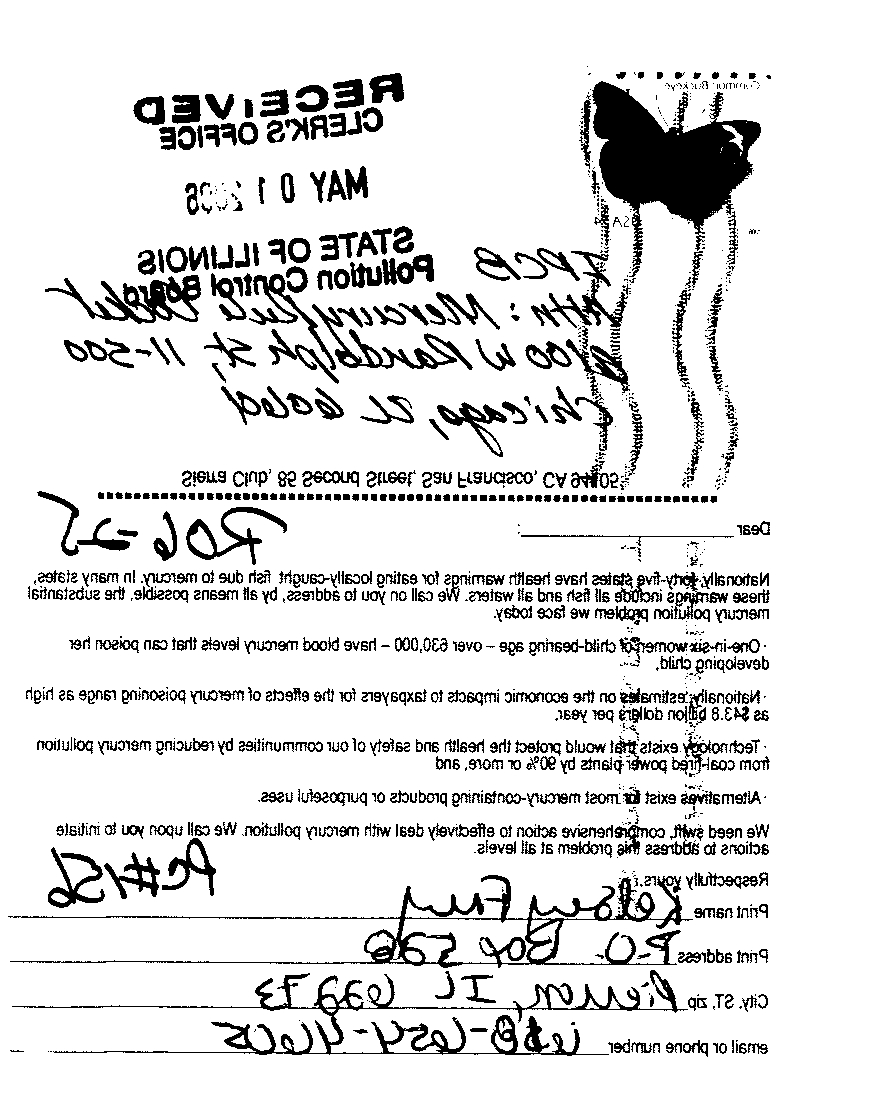 Common Buckeye
RECEIVED
CLERK'S OFFICE
MAY 01 2006
STATE OF ILLINOIS
Pollution Control Board
IPCB
Attn: Mercury Rule Docket
100 W Randolph St, 11-500
Chicago, IL 60601
Sierra Club, 85 Second Street, San Francisco, CA 94105
R06-25
Dear
Nationally, forty-five states have health warnings for eating locally-caught fish due to mercury. In many states,
these warnings include all fish and all waters. We call on you to address, by all means possible, the substantial
mercury pollution problem we face today.
· One-in-six women of child-bearing age – over 630,000 – have blood mercury levels that can poison her
developing child,
· Nationally, estimates on the economic impacts to taxpayers for the effects of mercury poisoning range as high
as $43.8 billion dollars per year,
· Technology exists that would protect the health and safety of our communities by reducing mercury pollution
from coal-fired power plants by 90% or more, and
· Alternatives exist for most mercury-containing products or purposeful uses.
We need swift, comprehensive action to effectively deal with mercury pollution. We call upon you to initiate
actions to address this problem at all levels.
PC#156
Respectfully yours,
Print name Kelsey
Print address P.O. Box 596
City, ST, zip Pierron, IL 62273
email or phone number 618-654-4605